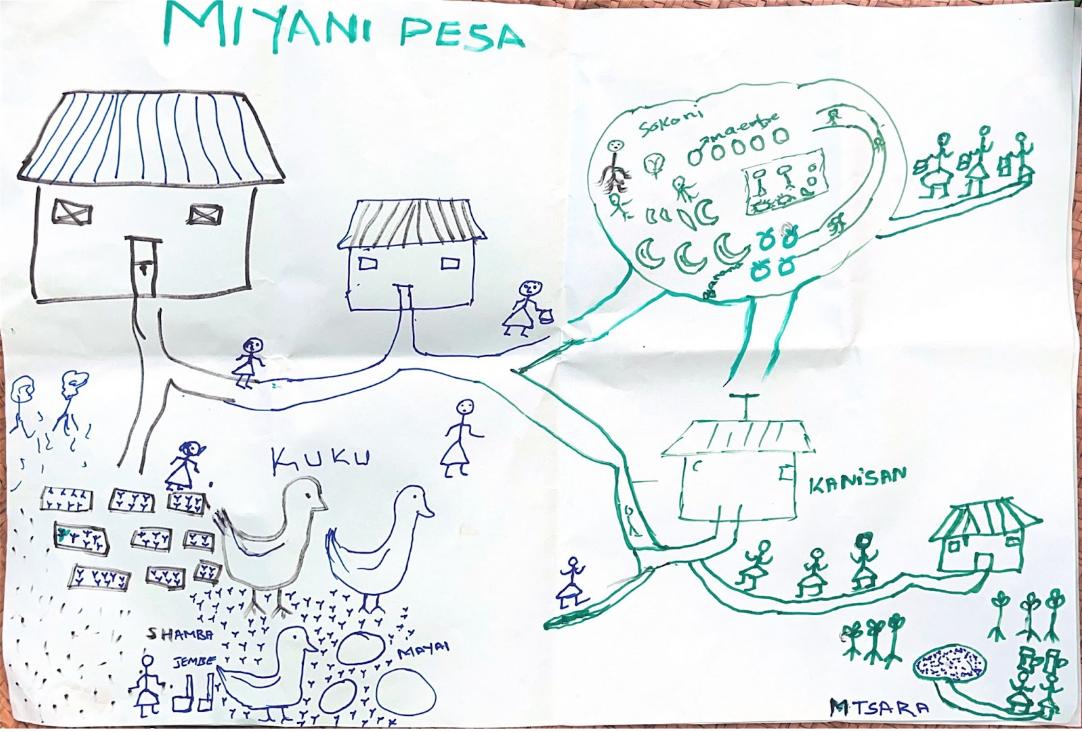 MIYANI PESA
Sokoni
maembe
Banana
KUKU
KANISAN
SHAMBA
JEMBE
MAYAI
MTSARA